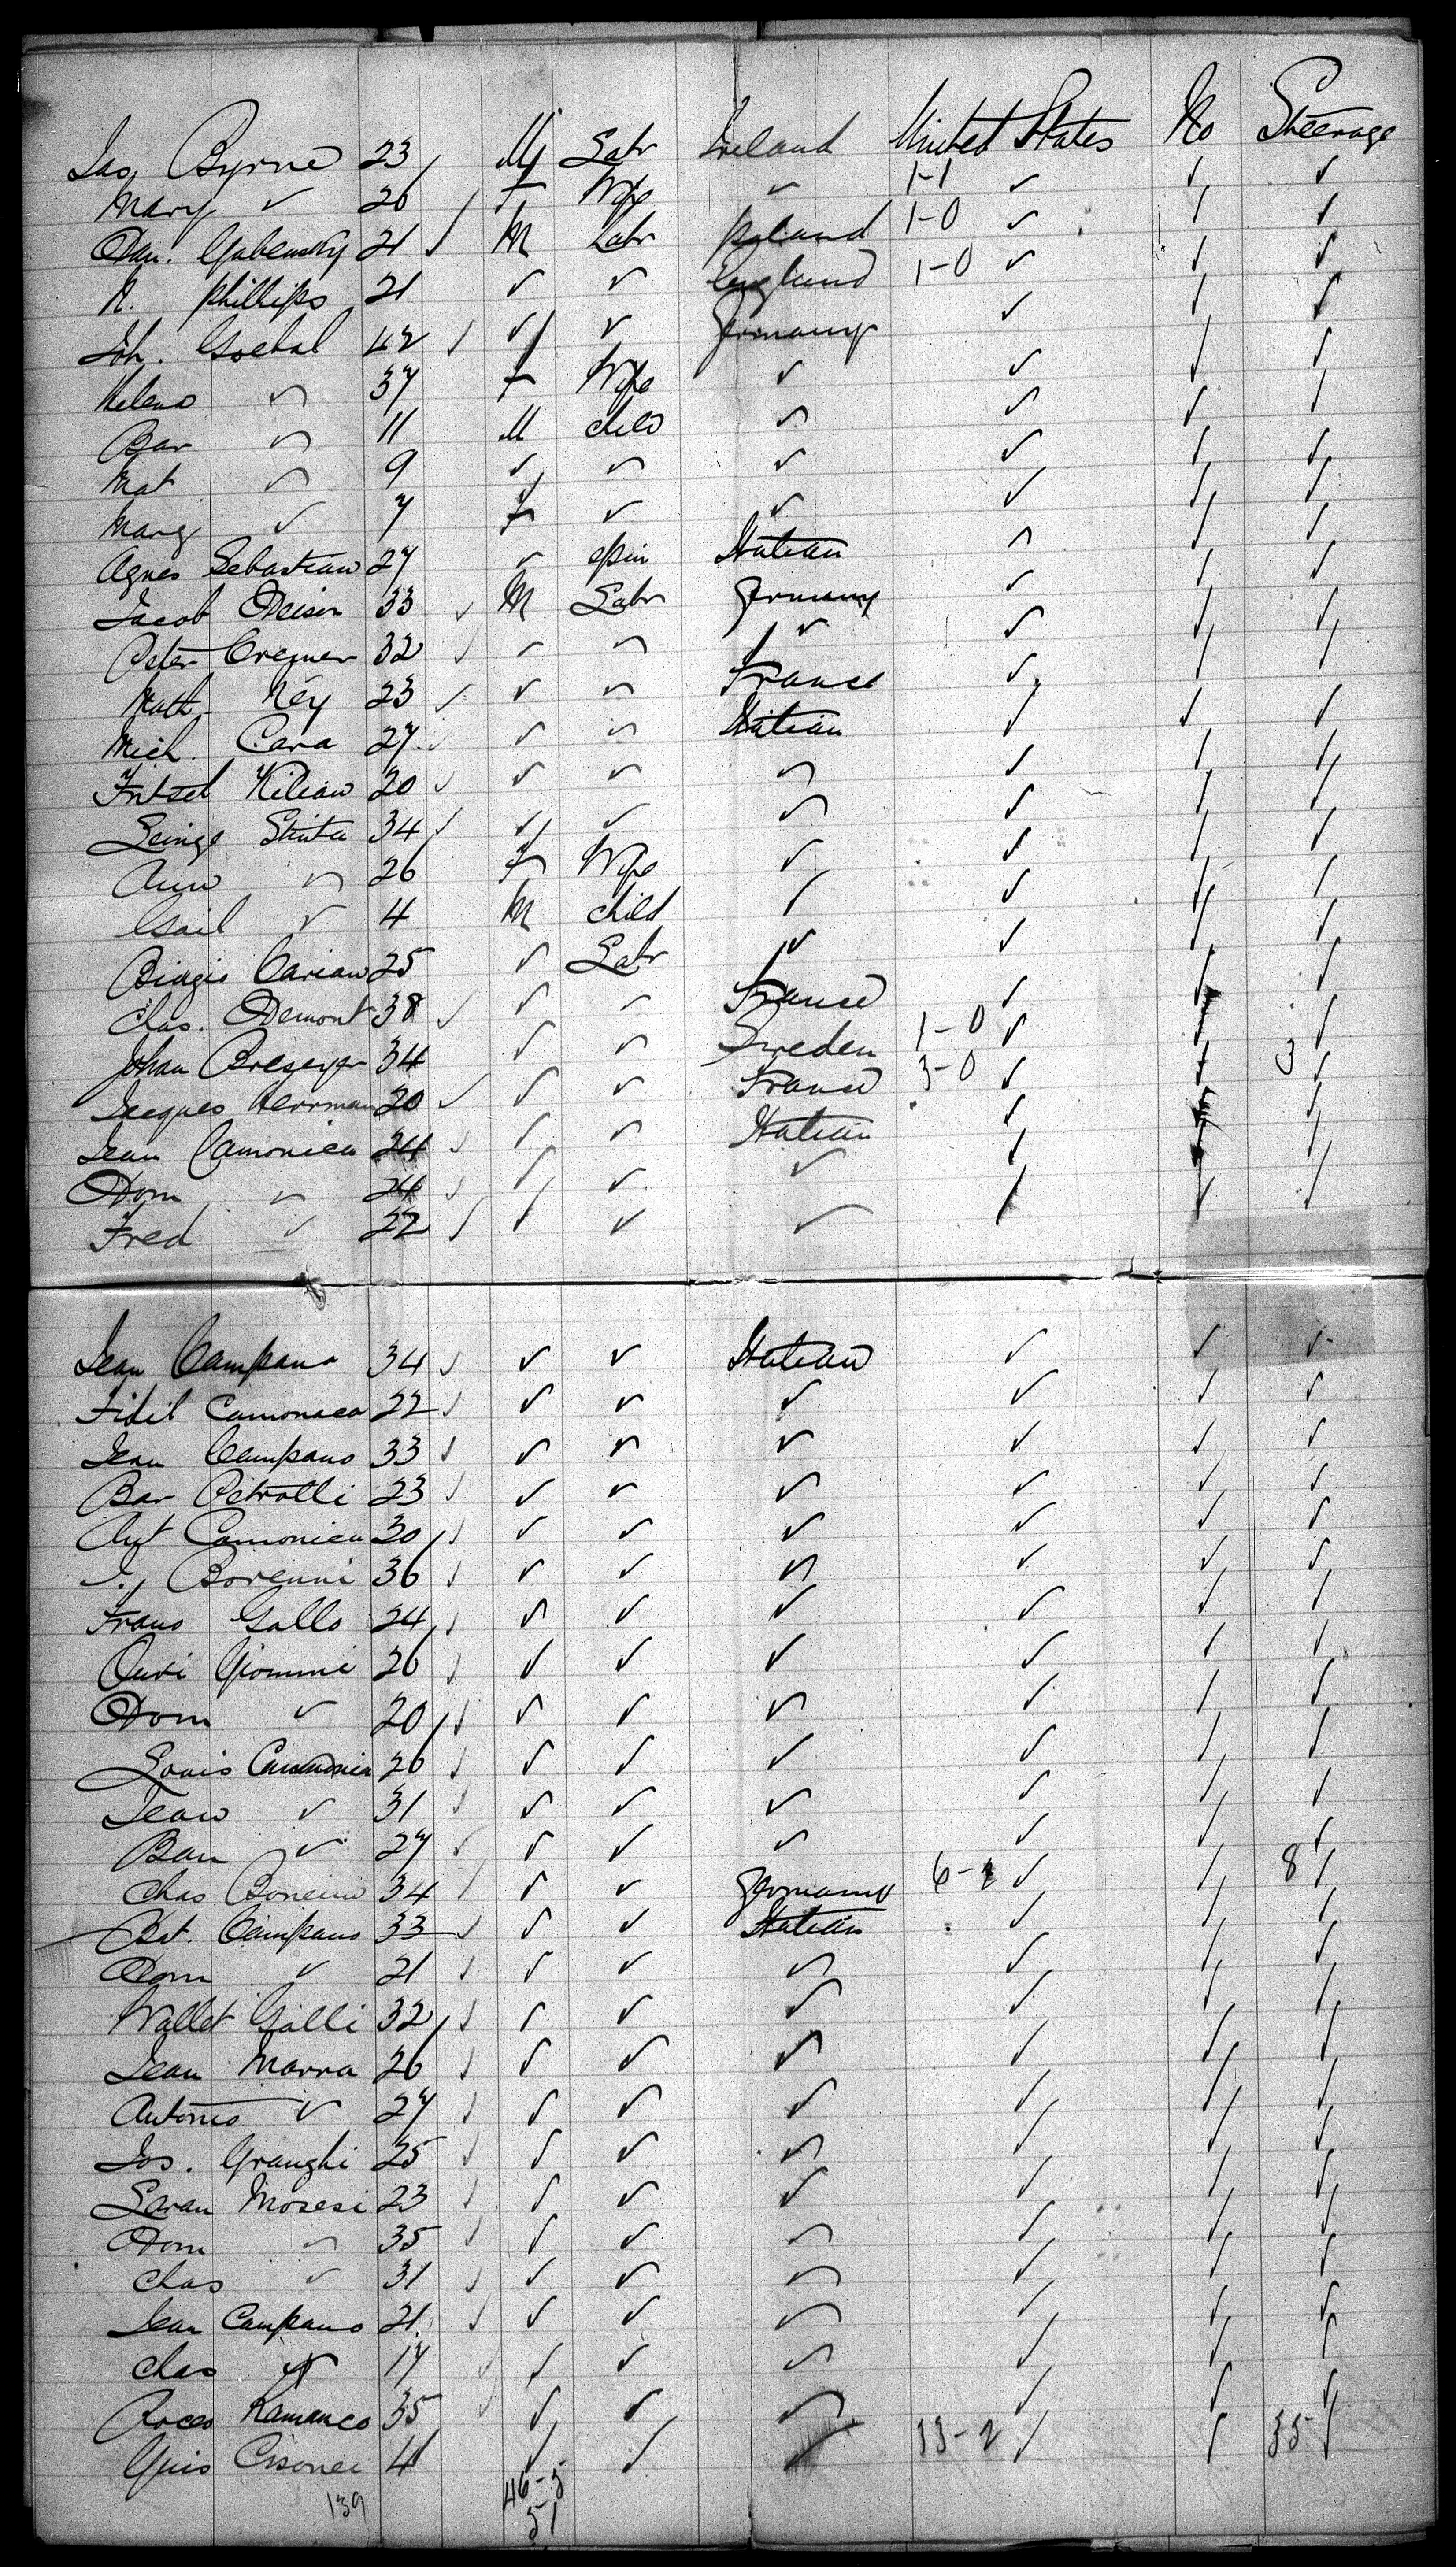 Jas Byrne 23 M Labr Ireland United States No Steerage
Mary ✓ 26 F Wife ✓ 1-1 ✓ ✓ ✓
Dan. 21 ✓ M Labr Poland 1-0 ✓ ✓ ✓
N. Phillips 21 ✓ ✓ England 1-0 ✓ ✓ ✓
Joh. Goebal 42 ✓ ✓ ✓ Germany ✓ ✓ ✓
Helena ✓ 37 F Wife ✓ ✓ ✓ ✓
Bar ✓ 11 M child ✓ ✓ ✓ ✓
Mat ✓ 9 ✓ ✓ ✓ ✓ ✓ ✓
Marg ✓ 7 F ✓ ✓ ✓ ✓ ✓
Agnes Sebastian 27 ✓ spin Italian ✓ ✓ ✓
Jacob Deisen 33 ✓ M Labr Germany ✓ ✓ ✓
Peter 32 ✓ ✓ ✓ ✓ ✓ ✓ ✓
Math Ney 23 ✓ ✓ ✓ France ✓ ✓ ✓
Mich. Cara 27 ✓ ✓ ✓ Italian ✓ ✓ ✓
Fritsel Kilian 20 ✓ ✓ ✓ ✓ ✓ ✓ ✓
34 ✓ ✓ ✓ ✓ ✓ ✓ ✓
Ann ✓ 26 F Wife ✓ ✓ ✓ ✓
Gail ✓ 4 M child ✓ ✓ ✓ ✓
Biagio Carian 25 ✓ Labr ✓ ✓ ✓ ✓
Chas. Demont 38 ✓ ✓ ✓ France ✓ ✓ ✓
Johan 34 ✓ ✓ Sweden 1-0 ✓ ✓ ✓
Jacques Herrman 20 ✓ ✓ ✓ France 3-0 ✓ ✓ 3 ✓
Jean Camonica 24 ✓ ✓ ✓ Italian ✓ ✓ ✓
Dom ✓ 24 ✓ ✓ ✓ ✓ ✓ ✓ ✓
Fred ✓ 22 ✓ ✓ ✓ ✓ ✓ ✓ ✓
Jean Campano 34 ✓ ✓ ✓ Italian ✓ ✓ ✓
Fidil Camonaca 22 ✓ ✓ ✓ ✓ ✓ ✓ ✓
Jean Campano 33 ✓ ✓ ✓ ✓ ✓ ✓ ✓
Bar Petrolli 23 ✓ ✓ ✓ ✓ ✓ ✓ ✓
Ant Camonica 30 ✓ ✓ ✓ ✓ ✓ ✓ ✓
J. Borenni 36 ✓ ✓ ✓ ✓ ✓ ✓ ✓
Frans Gallo 24 ✓ ✓ ✓ ✓ ✓ ✓ ✓
Giommi 26 ✓ ✓ ✓ ✓ ✓ ✓ ✓
Dom ✓ 20 ✓ ✓ ✓ ✓ ✓ ✓ ✓
Louis 26 ✓ ✓ ✓ ✓ ✓ ✓ ✓
Jean ✓ 31 ✓ ✓ ✓ ✓ ✓ ✓ ✓
Ban ✓ 27 ✓ ✓ ✓ ✓ ✓ ✓ ✓
Chas 34 ✓ ✓ ✓ Germany ✓ ✓ 8 ✓
Bat. Campano 33 ✓ ✓ ✓ Italian ✓ ✓ ✓
Dom ✓ 21 ✓ ✓ ✓ ✓ ✓ ✓ ✓
Wallet Galli 32 ✓ ✓ ✓ ✓ ✓ ✓ ✓
Jean Marra 26 ✓ ✓ ✓ ✓ ✓ ✓ ✓
Antonio ✓ 27 ✓ ✓ ✓ ✓ ✓ ✓ ✓
Jos. Granghi 25 ✓ ✓ ✓ ✓ ✓ ✓ ✓
Saran Mosesi 23 ✓ ✓ ✓ ✓ ✓ ✓ ✓
Dom ✓ 35 ✓ ✓ ✓ ✓ ✓ ✓ ✓
Chas ✓ 31 ✓ ✓ ✓ ✓ ✓ ✓ ✓
Jean Campano 21 ✓ ✓ ✓ ✓ ✓ ✓ ✓
Chas ✓ 17 ✓ ✓ ✓ ✓ ✓ ✓ ✓
Rocco Ramanco 35 ✓ ✓ ✓ ✓ ✓ ✓ ✓
✓ ✓ ✓ 33-2 ✓ ✓ 35 ✓
139 46-5
51